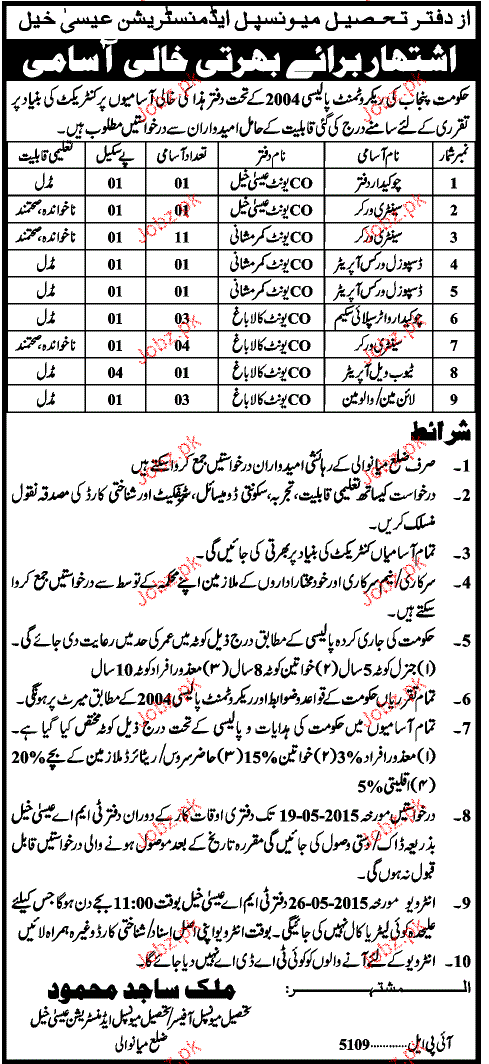 از دفتر تحصیل میونسپل ایڈمنسٹریشن عیسیٰ خیل
اشتہار برائے بھرتی خالی آسامی
حکومت پنجاب کی ریکروٹمنٹ پالیسی 2004 کے تحت دفتر ہذا کی خالی آسامیوں پر کنٹریکٹ کی بنیاد پر
تقرری کے لئے سامنے درج کی گئی قابلیت کے حامل امیدواران سے درخواستیں مطلوب ہیں۔
نمبر شمار نام آسامی نام دفتر تعداد آسامی پے سکیل تعلیمی قابلیت
1 چوکیدار دفتر CO یونٹ عیسیٰ خیل 01 01 مڈل
2 سینٹری ورکر CO یونٹ عیسیٰ خیل 01 01 ناخواندہ، صحتمند
3 سینٹری ورکر CO یونٹ کمر مشانی 11 01 ناخواندہ، صحتمند
4 ڈسپوزل ورکس آپریٹر CO یونٹ کمر مشانی 01 01 مڈل
5 ڈسپوزل ورکس آپریٹر CO یونٹ کمر مشانی 01 01 مڈل
6 چوکیدار واٹر سپلائی سکیم CO یونٹ کالا باغ 03 01 مڈل
7 سینٹری ورکر CO یونٹ کالا باغ 04 01 ناخواندہ، صحتمند
8 ٹیوب ویل آپریٹر CO یونٹ کالا باغ 01 04 مڈل
9 لائن مین/والو مین CO یونٹ کالا باغ 03 01 مڈل
شرائط
1۔ صرف ضلع میانوالی کے رہائشی امیدواران درخواستیں جمع کروا سکتے ہیں
2۔ درخواست کیساتھ تعلیمی قابلیت، تجربہ، سکونتی ڈومیسائل، سرٹیفکیٹ اور شناختی کارڈ کی مصدقہ نقول
منسلک کریں۔
3۔ تمام آسامیاں کنٹریکٹ کی بنیاد پر بھرتی کی جائیں گی۔
4۔ سرکاری/نیم سرکاری اور خود مختار اداروں کے ملازمین اپنے محکمہ کے توسط سے درخواستیں جمع کروا
سکتے ہیں۔
5۔ حکومت کی جاری کردہ پالیسی کے مطابق درج ذیل کوٹہ میں عمر کی حد میں رعایت دی جائے گی۔
(۱) جنرل کوٹہ 5 سال (۲) خواتین کوٹہ 8 سال (۳) معذور افراد کوٹہ 10 سال
6۔ تمام تقرریاں حکومت کے قواعد و ضوابط اور ریکروٹمنٹ پالیسی 2004 کے مطابق میرٹ پر ہونگی۔
7۔ تمام آسامیوں میں حکومت کی ہدایات و پالیسی کے تحت درج ذیل کوٹہ مختص کیا گیا ہے۔
(۱) معذور افراد %3 (۲) خواتین %15 (۳) حاضر سروس/ریٹائرڈ ملازمین کے بچے %20
(۴) اقلیتی %5
8۔ درخواستیں مورخہ 19-05-2015 تک دفتری اوقات کار کے دوران دفتر ٹی ایم اے عیسیٰ خیل
بذریعہ ڈاک/دستی وصول کی جائیں گی مقررہ تاریخ کے بعد موصول ہونے والی درخواستیں قابل
قبول نہ ہوں گی۔
9۔ انٹرویو مورخہ 26-05-2015 دفتر ٹی ایم اے عیسیٰ خیل بوقت 11:00 بجے دن ہوگا جس کیلئے
علیحدہ کوئی لیٹر یا کال نہیں کی جائیگی۔ بوقت انٹرویو اپنی اصل اسناد/شناختی کارڈ وغیرہ ہمراہ لائیں
10۔ انٹرویو کے لئے آنے والوں کو کوئی ٹی اے ڈی اے نہیں دیا جائے گا۔
المشتہر
ملک ساجد محمود
تحصیل میونسپل آفیسر/تحصیل میونسپل ایڈمنسٹریشن عیسیٰ خیل
ضلع میانوالی
آئی پی ایل............5109
Jobz.pk